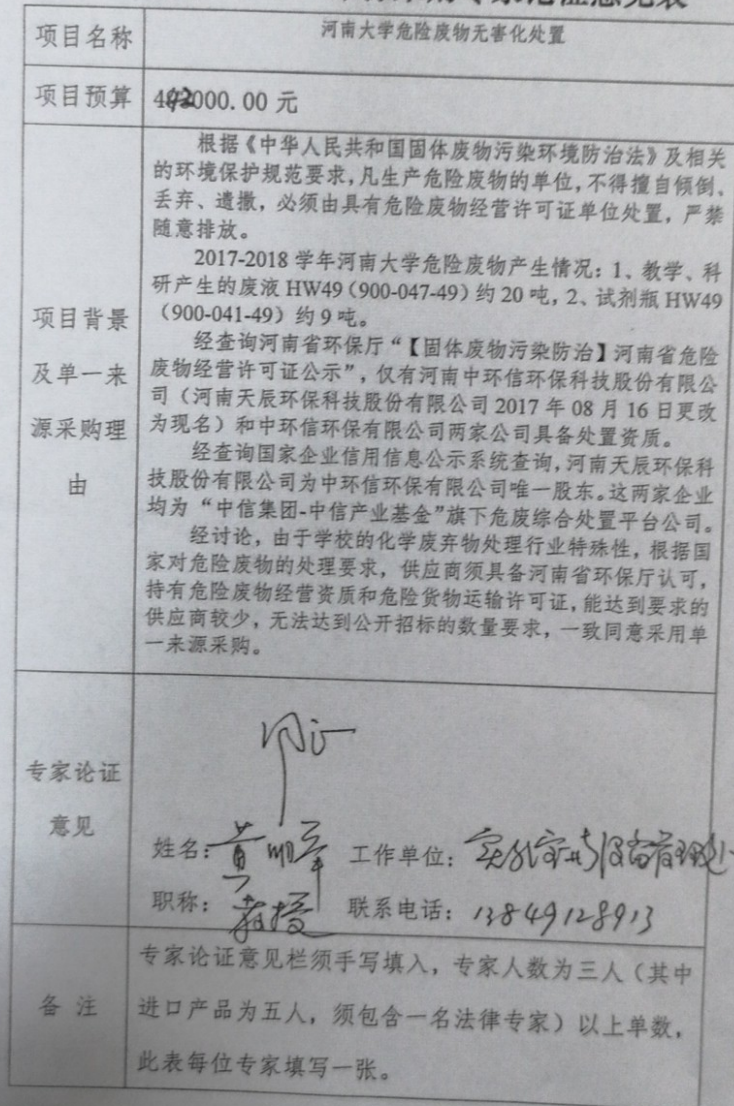 项目名称
河南大学危险废物无害化处置
项目预算
492000.00 元
项目背景
及单一来
源采购理
由
根据《中华人民共和国固体废物污染环境防治法》及相关
的环境保护规范要求,凡生产危险废物的单位,不得擅自倾倒、
丢弃、遗撒,必须由具有危险废物经营许可证单位处置,严禁
随意排放。
2017-2018 学年河南大学危险废物产生情况:1、教学、科
研产生的废液 HW49(900-047-49)约 20 吨,2、试剂瓶 HW49
(900-041-49)约 9 吨。
经查询河南省环保厅“【固体废物污染防治】河南省危险
废物经营许可证公示”,仅有河南中环信环保科技股份有限公
司(河南天辰环保科技股份有限公司 2017 年 08 月 16 日更改
为现名)和中环信环保有限公司两家公司具备处置资质。
经查询国家企业信用信息公示系统查询,河南天辰环保科
技股份有限公司为中环信环保有限公司唯一股东。这两家企业
均为 “中信集团-中信产业基金”旗下危废综合处置平台公司。
经讨论,由于学校的化学废弃物处理行业特殊性,根据国
家对危险废物的处理要求,供应商须具备河南省环保厅认可,
持有危险废物经营资质和危险货物运输许可证,能达到要求的
供应商较少,无法达到公开招标的数量要求,一致同意采用单
一来源采购。
专家论证
意见
姓名:黄明军 工作单位:实验室与设备管理处
职称:教授 联系电话:13849128913
备 注
专家论证意见栏须手写填入,专家人数为三人(其中
进口产品为五人,须包含一名法律专家)以上单数,
此表每位专家填写一张。